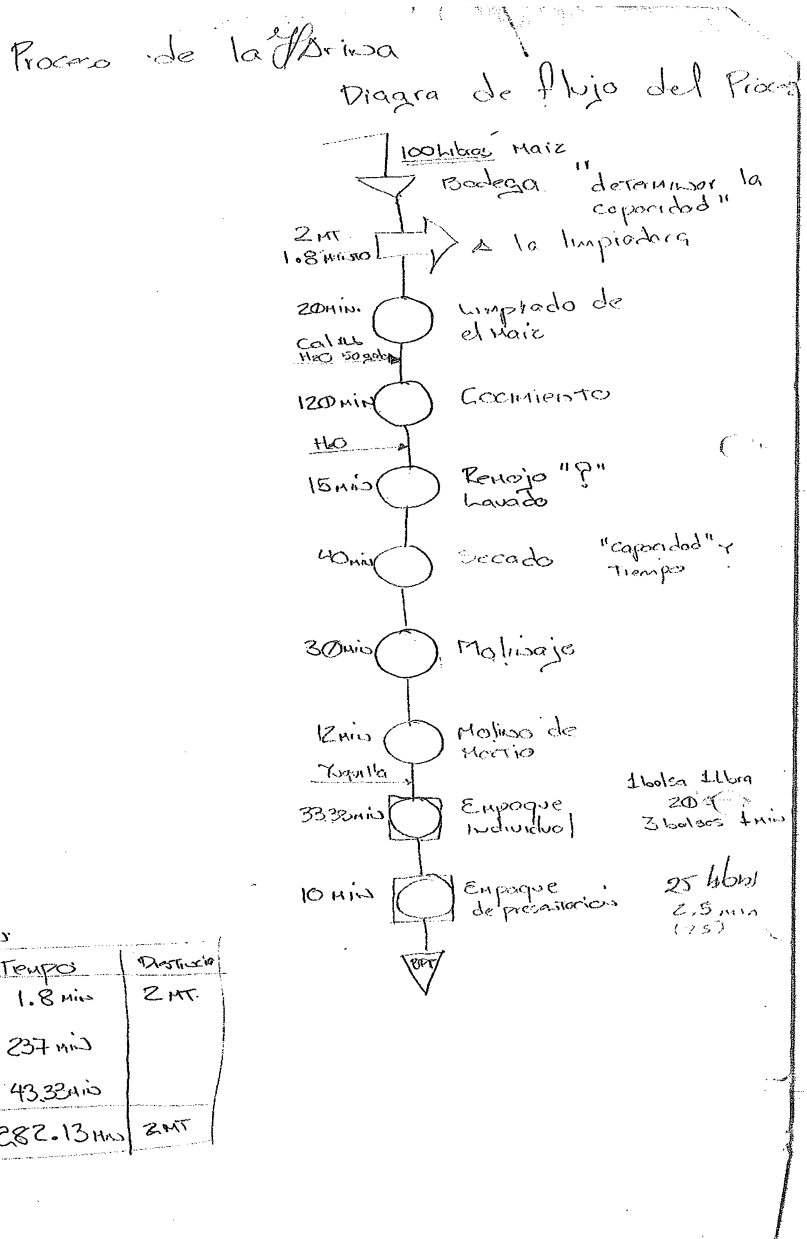 Proceso de la Harina
Diagra de flujo del Proces
100 Libras Maiz
Bodega "determinar la
capacidad"
2 MT.
1.8 minuto
A la limpiadora
20 min.
Limpiado de
el Maiz
Cal 1Lb
H2O 50 galo
120 min
Cocimiento
H2O
15 min
Remojo "?"
Lavado
40 min
Secado
"capacidad" y
Tiempo
30 min
Molinaje
12 min
Molino de
Yuquilla
33.33 min
Empaque
Individual
1 bolsa 1 Libra
20
3 bolsas 1 min
10 min
Empaque
de presentacion
25
2.5 min
(25)
BPT
Tiempo
Distancia
1.8 min
2 MT.
237 min
43.33 min
282.13 min
2 MT